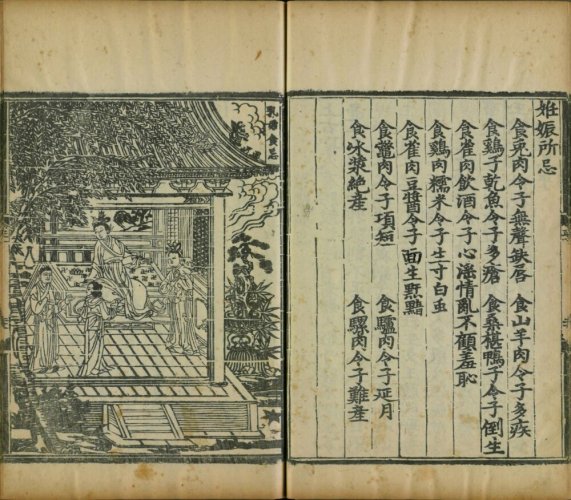 妊娠所忌
食兎肉令子無聲缺唇　食山羊肉令子多疾
食鷄子乾魚令子多瘡　食桑椹鴨子令子倒生
食雀肉飲酒令子心淫情亂不顧羞恥
食鷄肉糯米令子生寸白虫
食雀肉豆醬令子面生䵟黯
食鼈肉令子項短　食驢肉令子延月
食冰漿絶産　食騾肉令子難産
乳母食忌